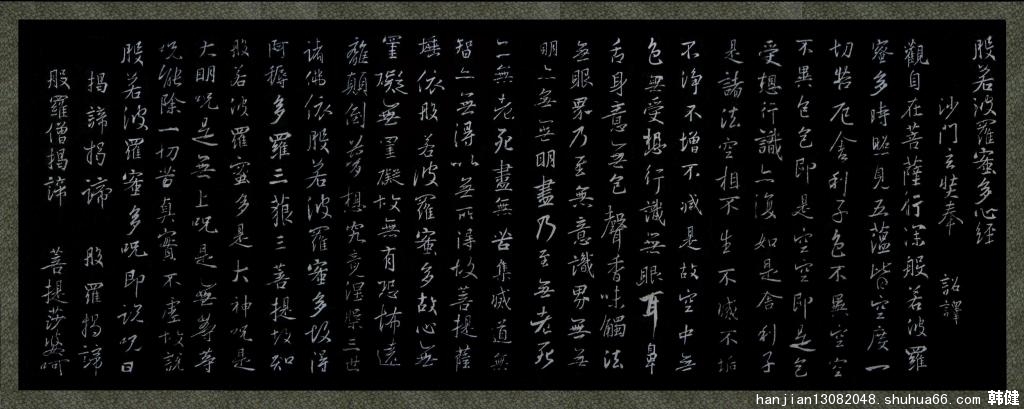 般若波羅蜜多心經
沙門玄奘奉 詔譯
觀自在菩薩行深般若波羅
蜜多時照見五蘊皆空度一
切苦厄舍利子色不異空空
不異色色即是空空即是色
受想行識亦復如是舍利子
是諸法空相不生不滅不垢
不淨不增不減是故空中無
色無受想行識無眼耳鼻
舌身意無色聲香味觸法
無眼界乃至無意識界無無
明亦無無明盡乃至無老死
亦無老死盡無苦集滅道無
智亦無得以無所得故菩提薩
埵依般若波羅蜜多故心無
罣礙無罣礙故無有恐怖遠
離顛倒夢想究竟涅槃三世
諸佛依般若波羅蜜多故得
阿耨多羅三藐三菩提故知
般若波羅蜜多是大神咒是
大明咒是無上咒是無等等
咒能除一切苦真實不虛故說
般若波羅蜜多咒即說咒曰
揭諦揭諦 般羅揭諦
般羅僧揭諦 菩提莎婆訶
hanjian13082048.shuhua66.com 韩健